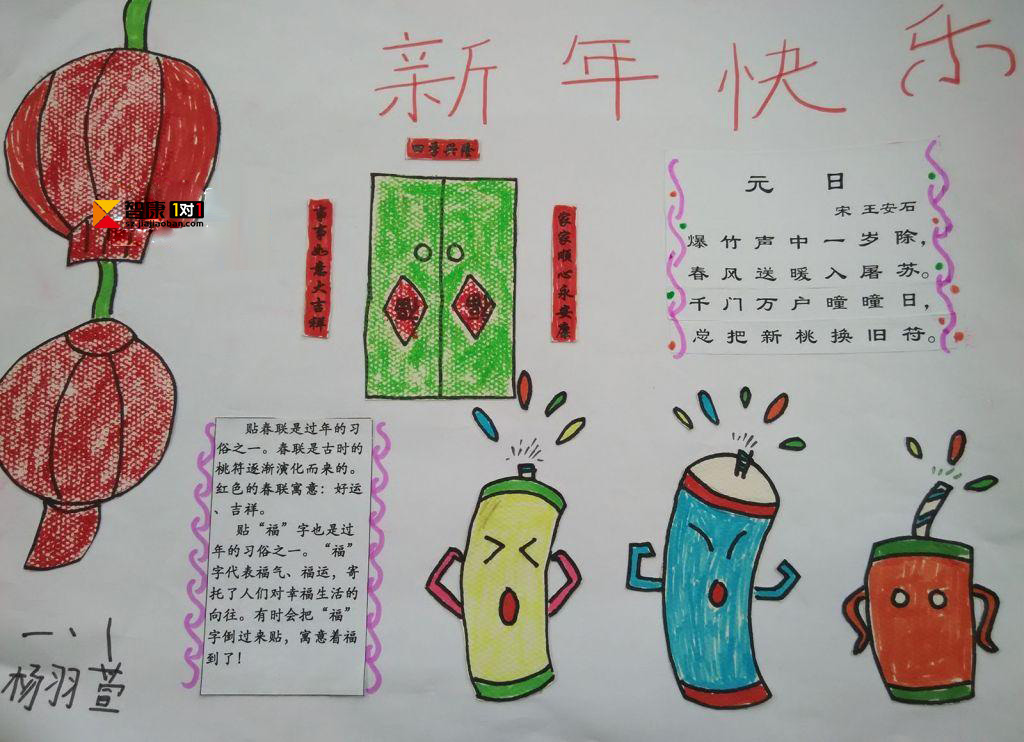 新年快乐
四季兴隆
事事如意大吉祥
家家顺心永安康
福
福
智康1对1
jiajiaoban.com
元 日
宋 王安石
爆竹声中一岁除，
春风送暖入屠苏。
千门万户曈曈日，
总把新桃换旧符。
贴春联是过年的习
俗之一。春联是古时的
桃符逐渐演化而来的。
红色的春联寓意：好运
、吉祥。
贴“福”字也是过
年的习俗之一。“福”
字代表福气、福运，寄
托了人们对幸福生活的
向往。有时会把“福”
字倒过来贴，寓意着福
到了！
一、1
杨羽萱